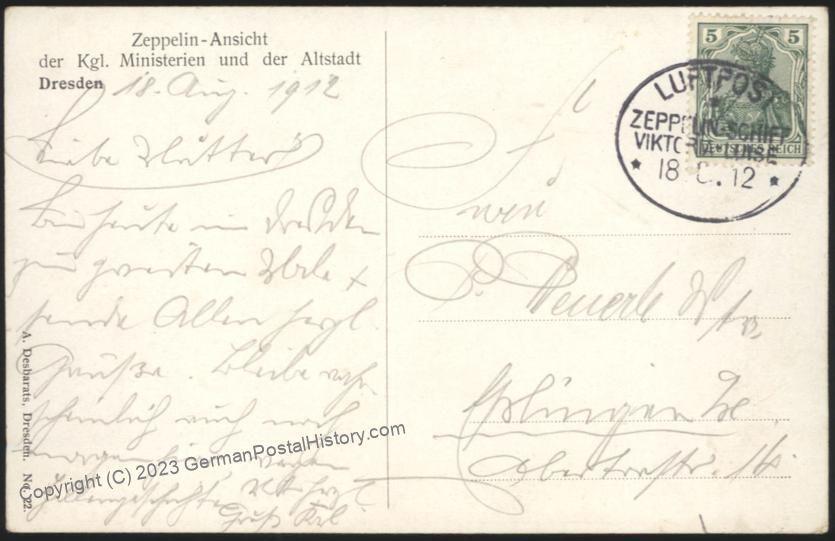 Zeppelin-Ansicht
der Kgl. Ministerien und der Altstadt
Dresden
18. Aug. 1912
Liebe Mutter!
Bin heute in Dresden
zum zweiten Male +
sende Allen herzl.
Grüße. Bleibe wahr-
scheinlich auch noch
morgen hier wegen
Herzl.
Gruß Karl
A. Desbarats, Dresden. No. 22.
Frau
P. Wtw.
Esslingen
14
5 5
DEUTSCHES REICH
LUFTPOST
ZEPPELIN-SCHIFF
VIKTORIA LUISE
* 18. 8. 12 *
Copyright (C) 2023 GermanPostalHistory.com